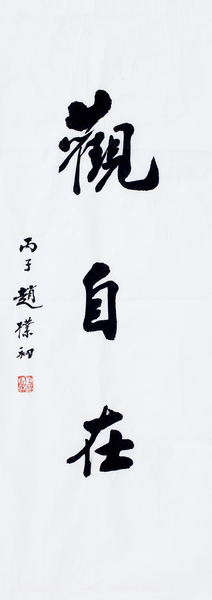 觀自在
丙子趙樸初